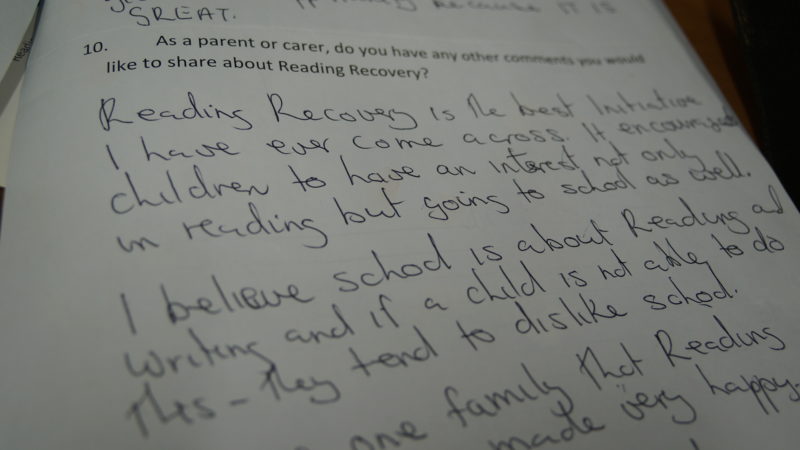 GREAT. IT IS
10. As a parent or carer, do you have any other comments you would
like to share about Reading Recovery?
Reading Recovery is the best Initiative
I have ever come across. It encourages
children to have an interest not only
in reading but going to school as well.
I believe school is about Reading and
writing and if a child is not able to do
this - they tend to dislike school.
one family that Reading
made very happy.